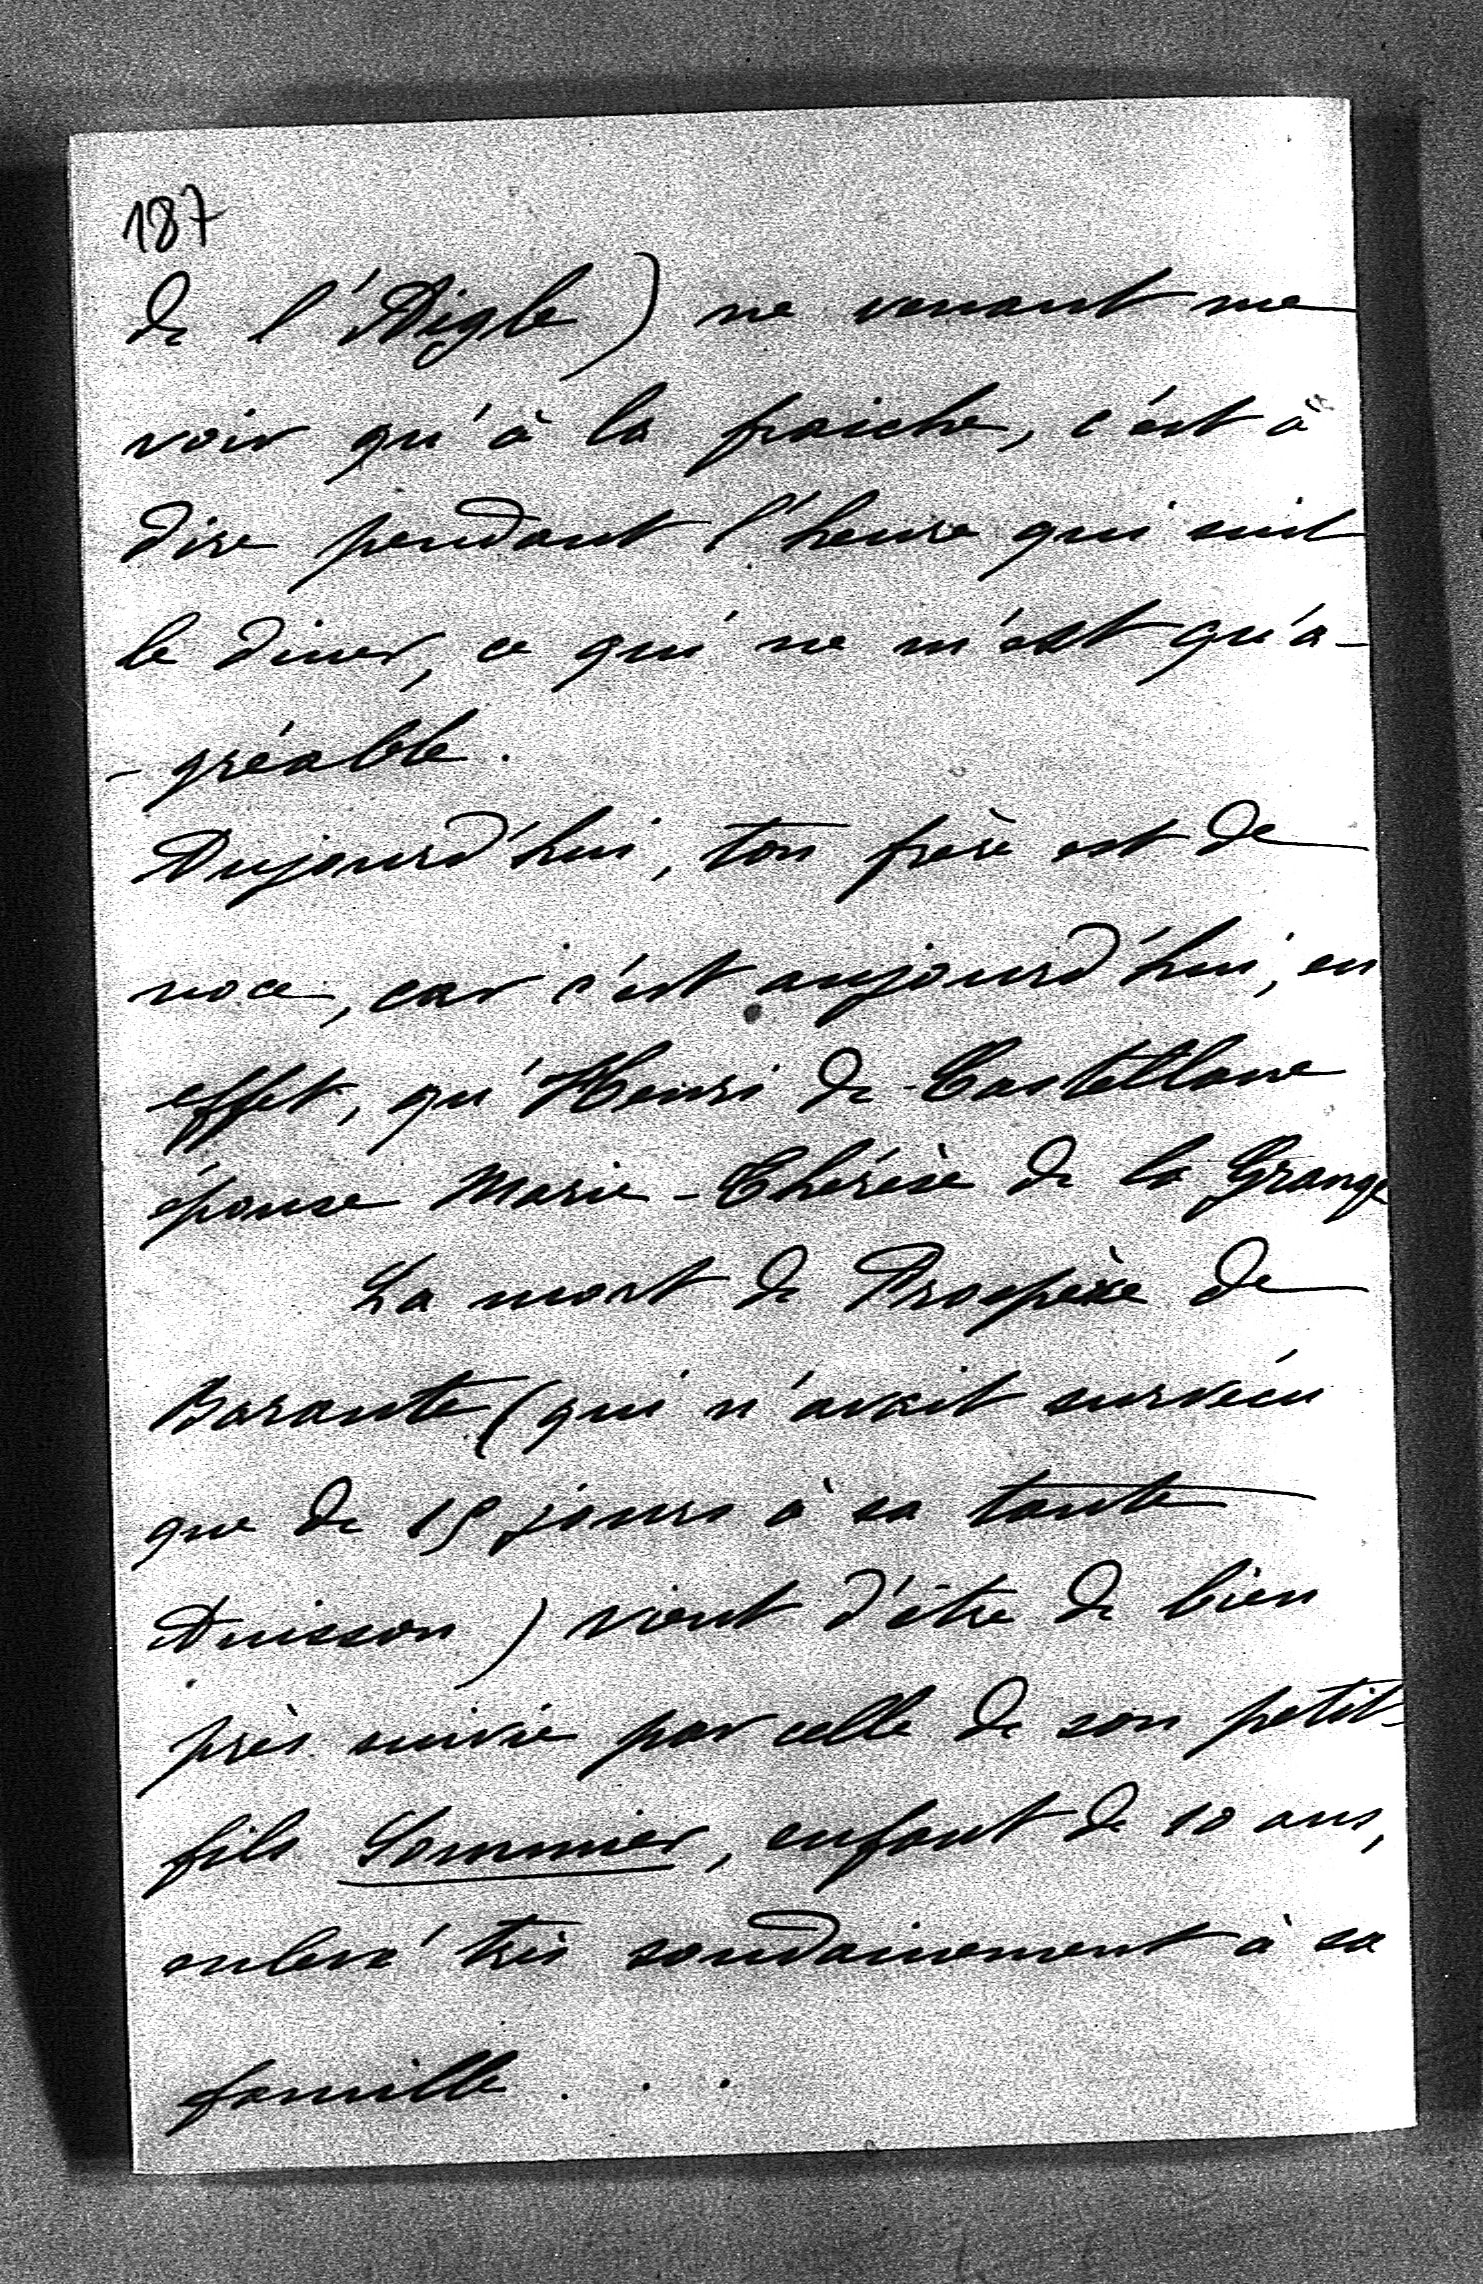 187
de l'Aigle) ne venant me
voir qu'à la fraiche, c'est à
dire pendant l'heure qui suit
le diner, ce qui ne m'est qu'a-
-gréable.
Aujourd'hui, ton frère est de
noce, car c'est aujourd'hui, en
effet, qu'Henri de Castellane
épouse Marie-Thérèse de la Grange
La mort de Prospère de
Barante (qui n'avait survécu
que de 15 jours à sa tante
Anisson) vient d'être de bien
près suivie par celle de son petit
fils Sommier, enfant de 10 ans,
enlevé très soudainement à sa
famille...